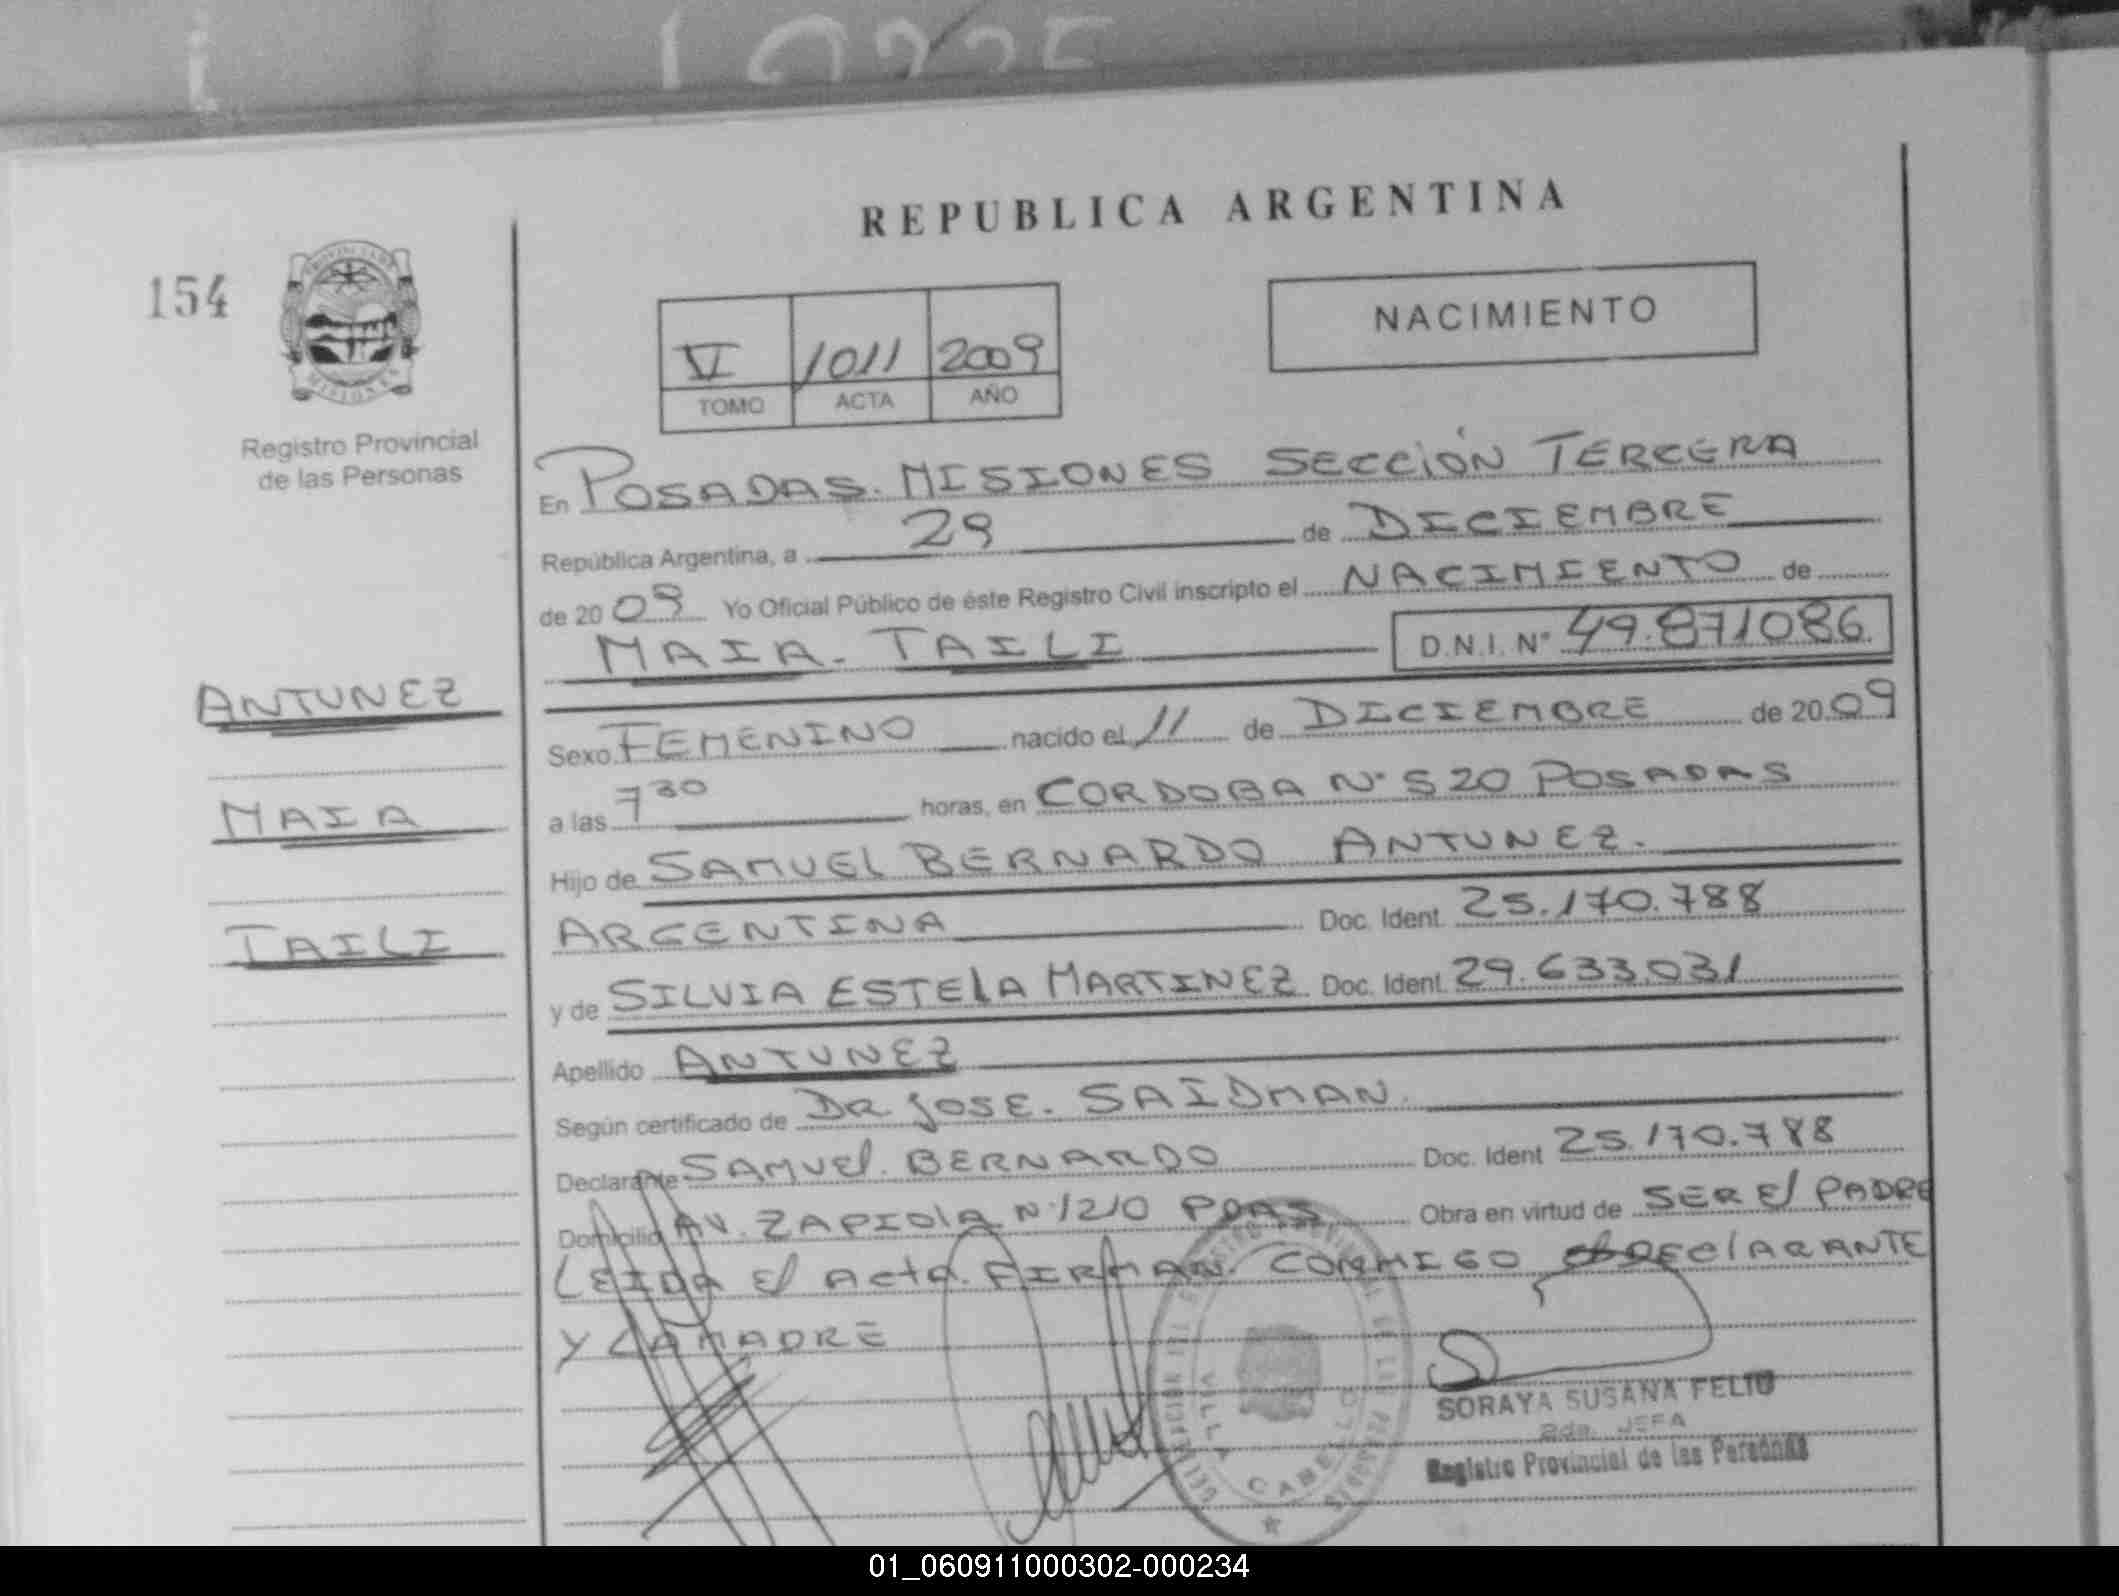 REPUBLICA ARGENTINA
154
PROVINCIA DE
MISIONES
Registro Provincial
de las Personas
VI 1011 2009
TOMO ACTA AÑO
NACIMIENTO
En POSADAS. MISIONES SECCIÓN TERCERA
República Argentina, a 29 de DICIEMBRE
de 2009 Yo Oficial Público de éste Registro Civil inscripto el NACIMIENTO de
MAIA. TAILI D.N.I. Nº 49.871086.
ANTUNEZ
MAIA
TAILI
Sexo FEMENINO nacido el 11 de DICIEMBRE de 2009
a las 7 30 horas, en CORDOBA Nº 520 POSADAS
Hijo de SAMUEL BERNARDO ANTUNEZ.
ARGENTINA Doc. Ident. 25.170.788
y de SILVIA ESTELA MARTINEZ Doc. Ident. 29.633.031
Apellido ANTUNEZ
Según certificado de DR JOSE. SAIDMAN.
Declarante SAMUEL. BERNARDO Doc. Ident 25.170.788
Domicilio AV. ZAPIOLA Nº 1210 PDAS Obra en virtud de SER El PADRE
LEIDA El ActA. FIRMAN. CONMIGO DEClARANTE
Y LA MADRE
VILLA CABELLO
SORAYA SUSANA FELTU
2da. JEFA
Registro Provincial de las Personas
01_060911000302-000234